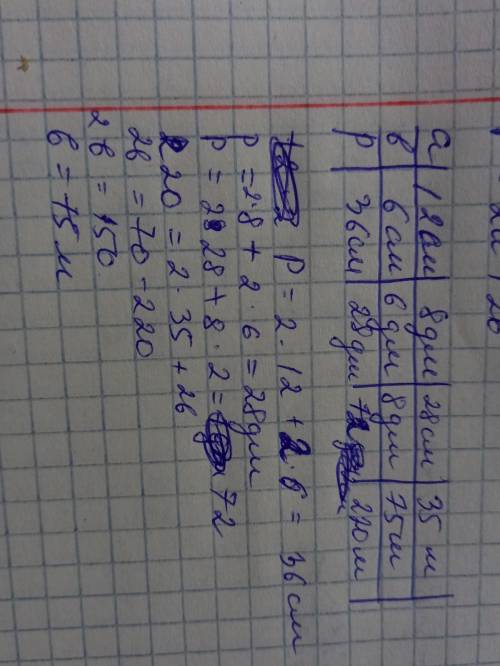 a | 12 см | 8 дм | 28 см | 35 м
в | 6 см | 6 дм | 8 дм | 75 м
р | 36 см | 28 дм | 72 | 220 м
Р = 2 · 12 + 2 · 6 = 36 см
р = 2·8 + 2 · 6 = 28 дм
р = 2 28 + 8 · 2 = 72
220 = 2 · 35 + 2в
2в = 70 - 220
2в = 150
в = 75 м